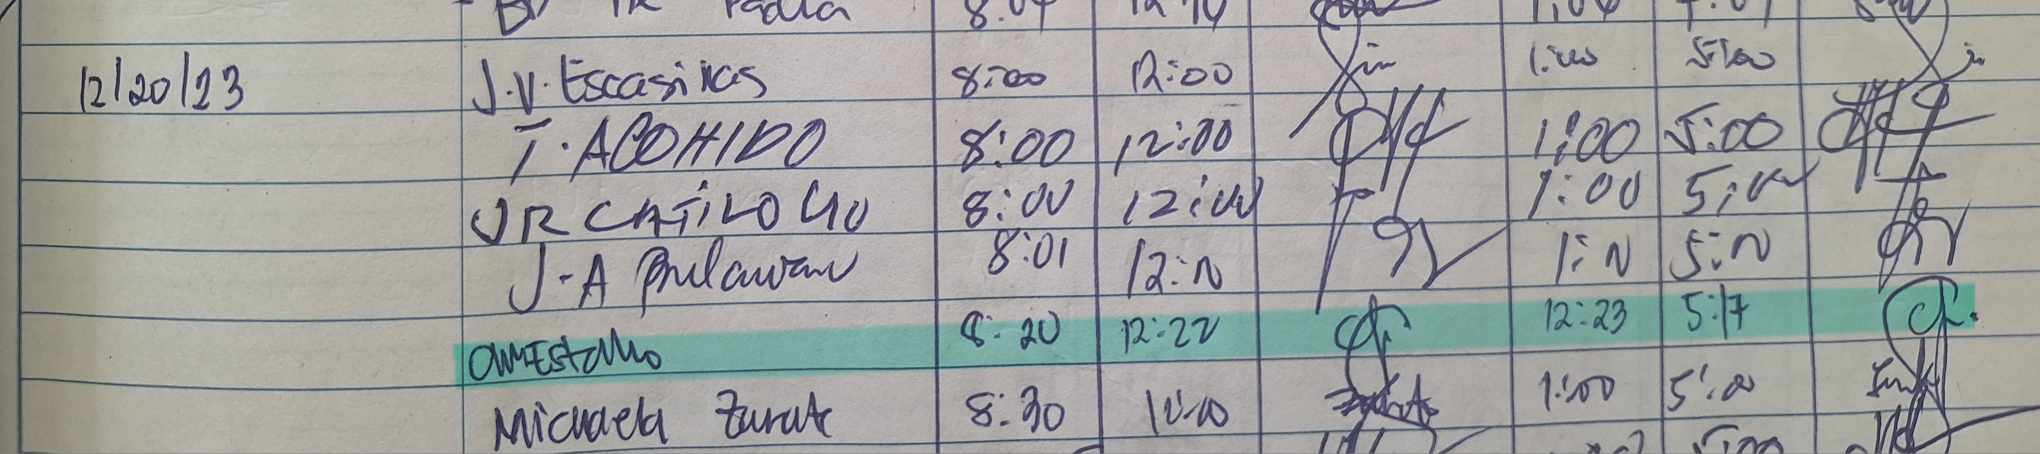 Padua 8:04
12/20/23 J.V. Escasinas 8:00 12:00 1:00 5:00
T. ACOHIDO 8:00 12:00 1:00 5:00
JR CATILOGO 8:00 12:00 1:00 5:00
J-A Bulawan 8:01 12:N 1:N 5:N
8:20 12:22 12:23 5:17
Michaela Zarate 8:30 1:00 5:00
5:00